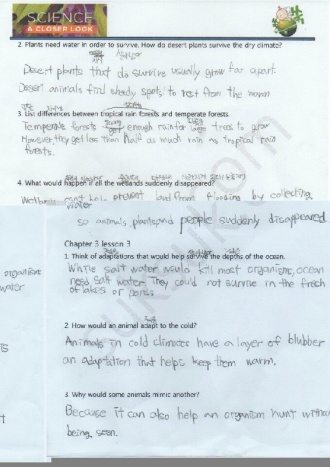 SCIENCE
A CLOSER LOOK
2. Plants need water in order to survive. How do desert plants survive the dry climate?
Desert plants that do survive usually grow far apart.
Desert animals find shady spots to rest from the
3. List differences between tropical rain forests and temperate forests
Temperate forests get enough rain for trees to grow
However, they get less than half as much rain as tropical rain
forests.
4. What would happen if all the wetlands suddenly disappeared?
Wetlands can't help prevent land from flooding by collecting
water
so animals, plants, and people suddenly disappeared
Chapter 3 lesson 3
1. Think of adaptations that would help survive the depths of the ocean.
organisms
While salt water would kill most organisms, ocean
water
need salt water. They could not survive in the fresh
of lakes or ponds.
2. How would an animal adapt to the cold?
Animals in cold climates have a layer of blubber
an adaptation that helps keep them warm.
3. Why would some animals mimic another?
Because it can also help an organism hunt without
being seen.